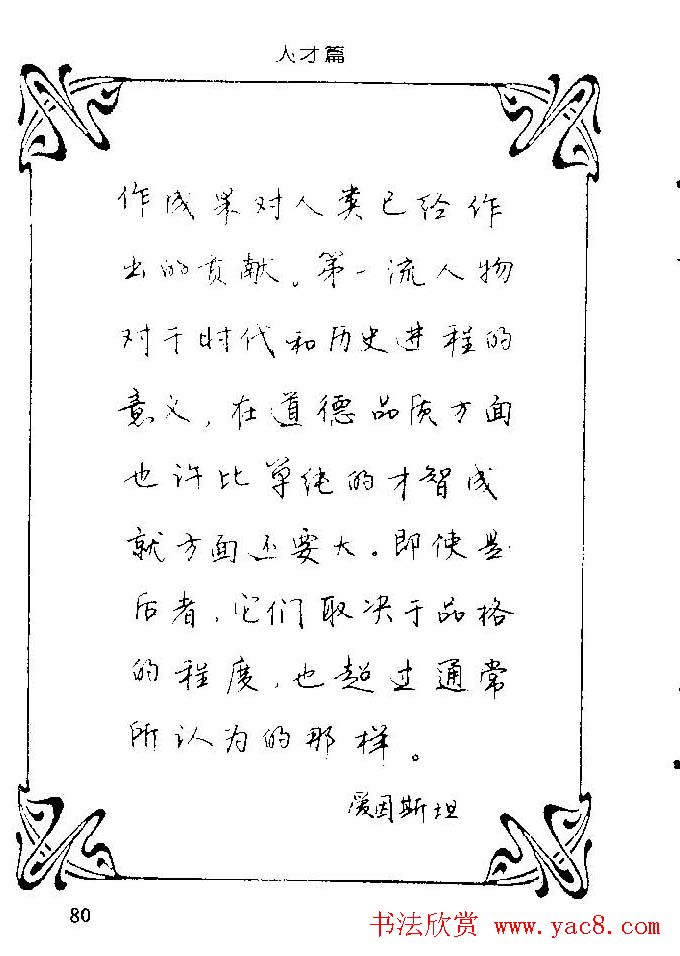 人才篇
作成果对人类已给作
出的贡献。第一流人物
对于时代和历史进程的
意义，在道德品质方面
也许比单纯的才智成
就方面还要大。即使是
后者，它们取决于品格
的程度，也超过通常
所认为的那样。
爱因斯坦
80
书法欣赏 www.yac8.com